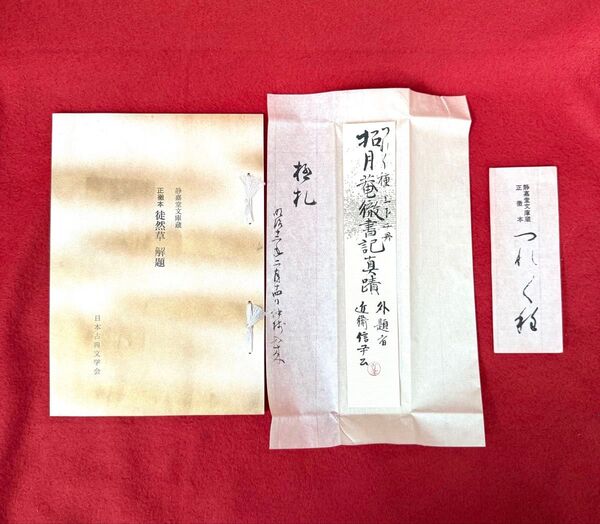 静嘉堂文庫蔵
正徹本 徒然草 解題
日本古典文学会
極札
つれ〱種 上下二冊
招月菴徹書記真蹟
外題者
近衛信尹公
静嘉堂文庫蔵
正徹本
つれ〱種